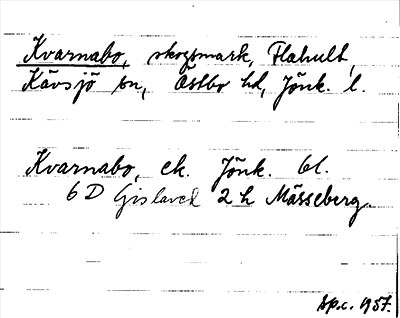 Kvarnabo, skogsmark, Flahult,
Kävsjö sn, Östbo hd, Jönk. l.
Kvarnabo, ek. Jönk. bl.
6 D Gislaved 2 h Mässeberg.
sp.c. 1957.